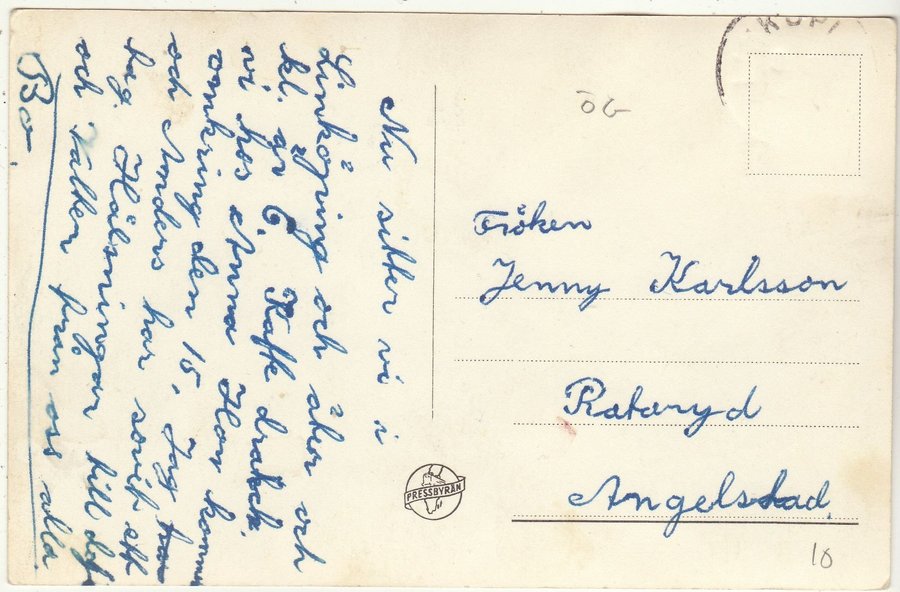 Nu sitter vi i
Linköping och åker och
kl. är 6. Kaffe drack
vi hos Anna Hon kommer
omkring den 15. Jag
och Anders har sovit ett
tag. Hälsningar till dej
och Valter från oss alla
Bo.
ÖG
Fröken
Jenny Karlsson
Rataryd
Angelstad.
PRESSBYRÅN
10